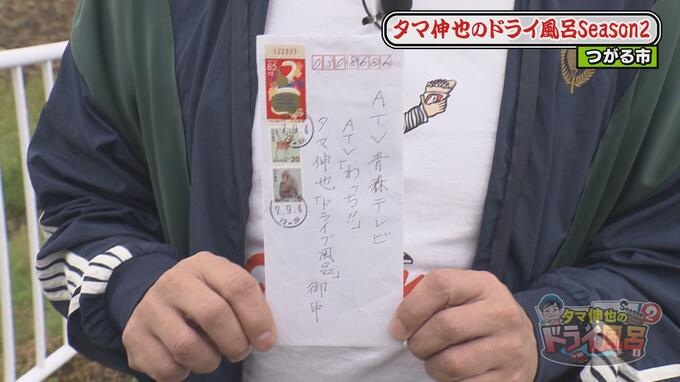 タマ伸也のドライ風呂Season2
つがる市
030-8686
ATV青森テレビ
ATV「わっち!!」
タマ伸也「ドライブ風呂」御中
122953
85
NIPPON 20
7.9.4
7.9.4
タマ伸也の
ドライ風呂
Season2